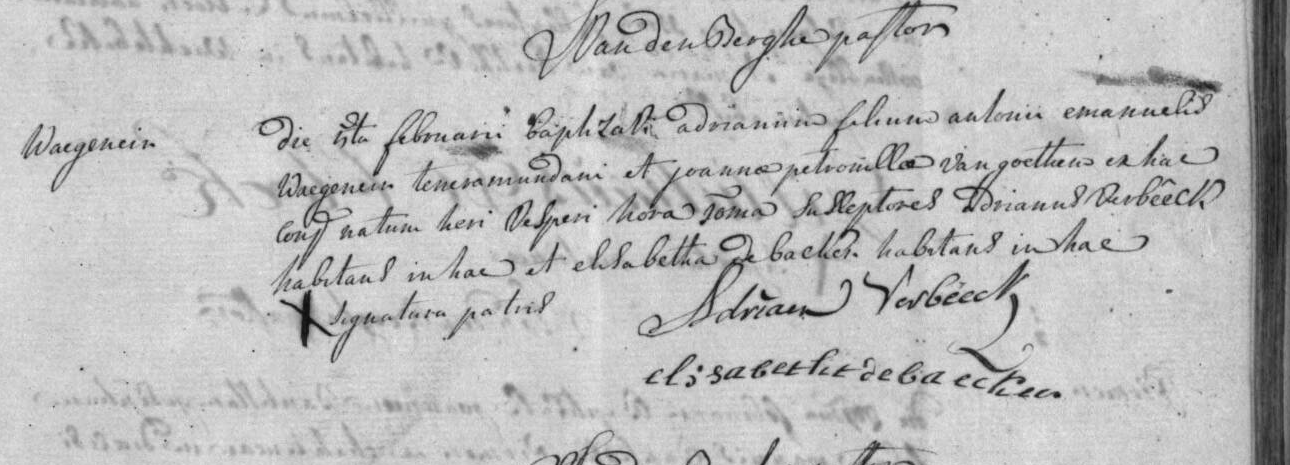 VandenBerghe pastor
Waegenein
die 5ta februarii baptizavi adrianum filium antonii emanuelis
Waegenein teneramundani et joannæ petronillæ van goethem ex hac
conj natum heri vesperi hora susceptores Adrianus verbêeck
habitans in hac et elisabetha de backer habitans in hac
X signatura patris
Adriaen Verbëeck
elisabethe de baecker